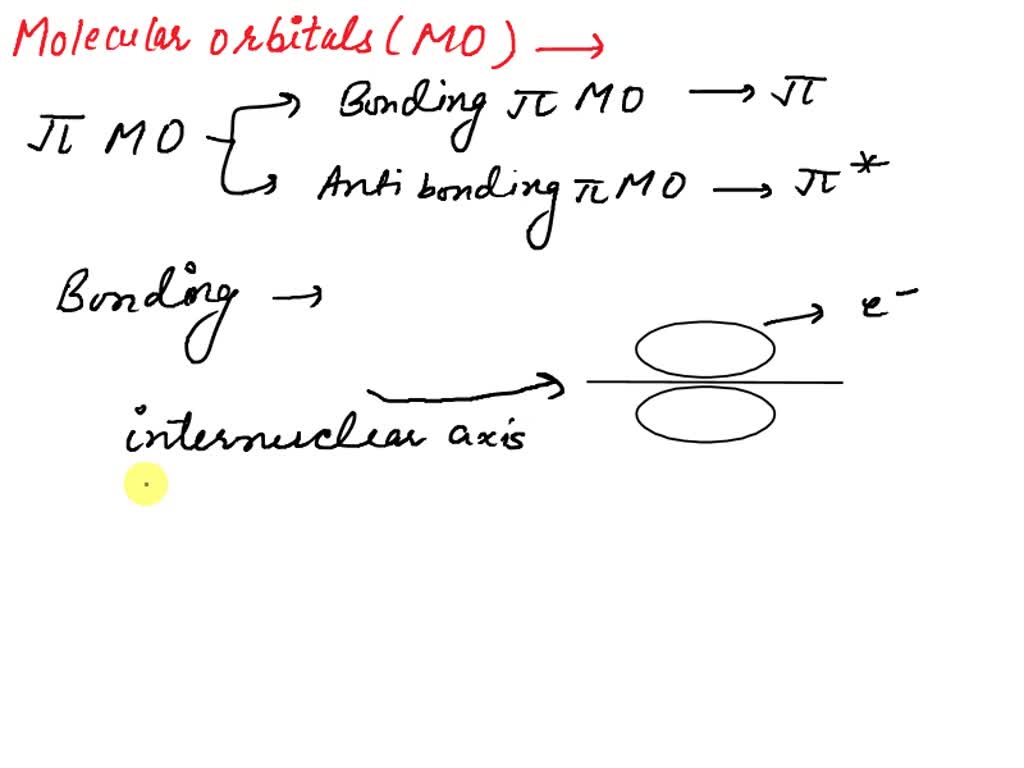 Molecular orbitals (MO) →
π MO
Bonding π MO → π
Anti bonding π MO → π*
Bonding →
e⁻
internuclear axis